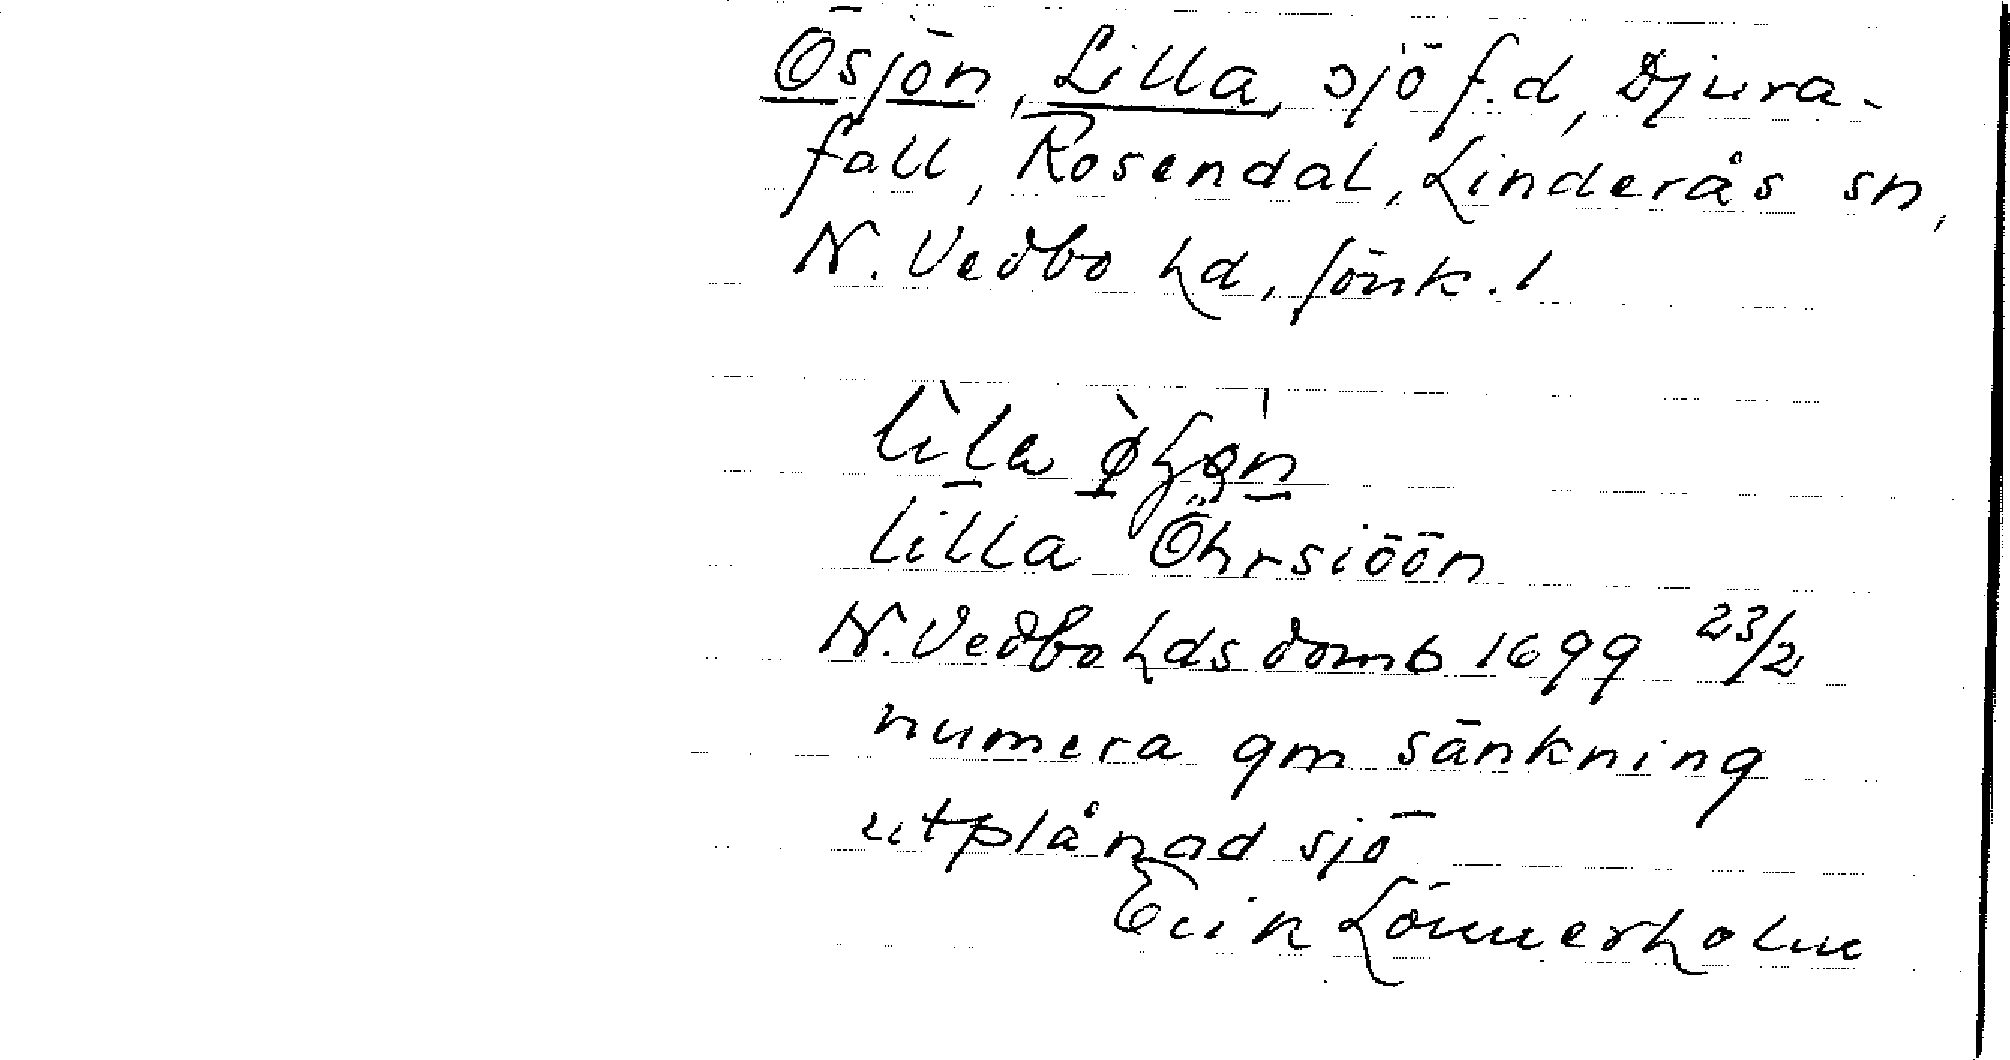 Ösjön, Lilla, sjö f.d, Djura-
fall, Rosendal, Linderås sn,
N. Vedbo hd, Jönk. l
lilla Öhrsiöön
N. Vedbo hds domb 1699 23/2
numera gm sänkning
utplånad sjö
Erik Lönnerholm